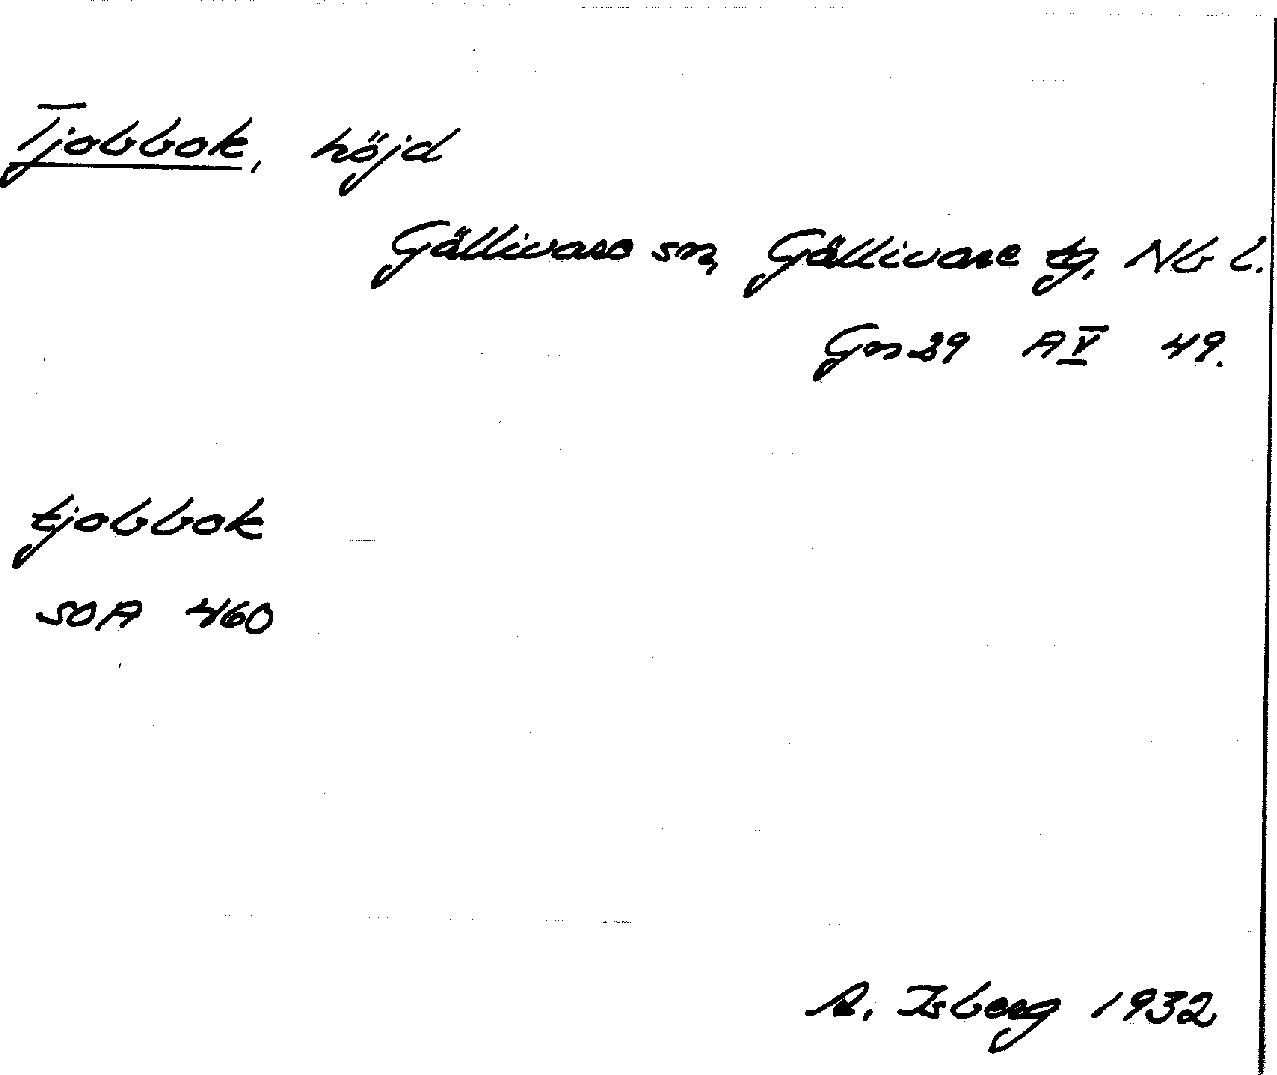 Tjobbok, höjd
Gällivare sn, Gällivare tg, Nb l.
Gm 29 A V 49.
tjobbok
SOA 460
A. Isberg 1932